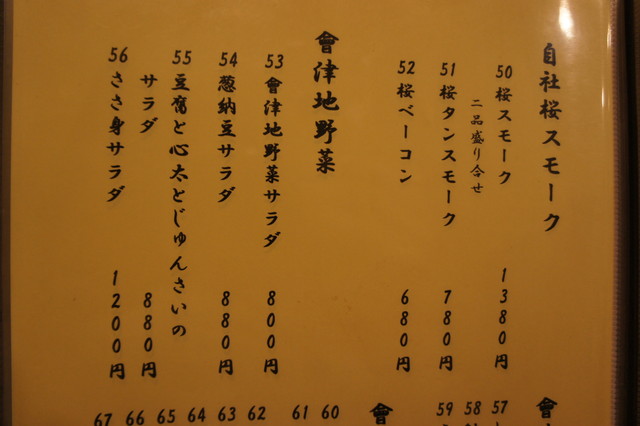 自社桜スモーク
50 桜スモーク 1380円
二品盛り合せ
51 桜タンスモーク 780円
52 桜ベーコン 680円
會津地野菜
53 會津地野菜サラダ 800円
54 葱納豆サラダ 880円
55 豆腐と心太とじゅんさいの
サラダ 880円
56 ささ身サラダ 1200円
會
57
58
59
會
60
61
62
63
64
65
66
67